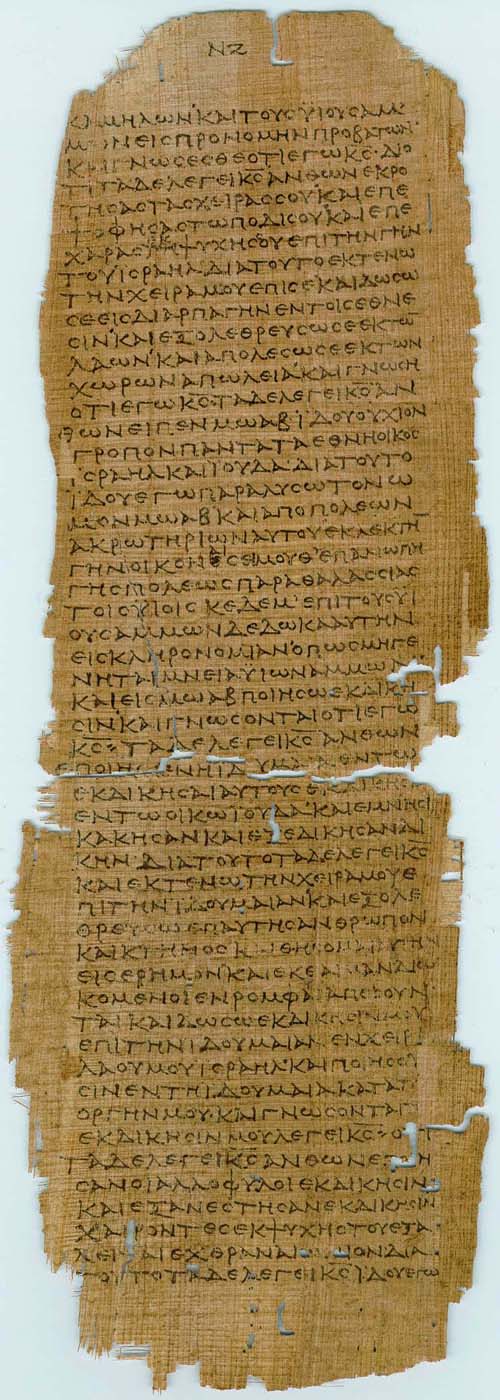 ΝΖ
ΚΑΜΗΛΩΝΚΑΙΤΟΥϹΫΙΟΥϹΑΜ
ΜΩΝΕΙϹΠΡΟΝΟΜΗΝΠΡΟΒΑΤΩΝ
ΚΑΙΓΝΩϹΕϹΘΕΟΤΙΕΓΩΚϹ ΔΙΟ
ΤΙΤΑΔΕΛΕΓΕΙΚϹΑΝΘΩΝΕΚΡΟ
ΤΗϹΑϹΤΑϹΧΕΙΡΑϹϹΟΥΚΑΙΕΠΕ
ΨΟΦΗϹΑϹΤΩΠΟΔΙϹΟΥΚΑΙΕΠΕ
ΧΑΡΑϹ ΨΥΧΗϹΟΥΕΠΙΤΗΝΓΗΝ
ΤΟΥΙϹΡΑΗΛΔΙΑΤΟΥΤΟΕΚΤΕΝΩ
ΤΗΝΧΕΙΡΑΜΟΥΕΠΙϹΕΚΑΙΔΩϹΩ
ϹΕΕΙϹΔΙΑΡΠΑΓΗΝΕΝΤΟΙϹΕΘΝΕ
ϹΙΝΚΑΙΕΞΟΛΕΘΡΕΥϹΩϹΕΕΚΤΩ̅
ΛΑΩΝΚΑΙΑΠΟΛΕϹΩϹΕΕΚΤΩΝ
ΧΩΡΩΝΑΠΩΛΕΙΑΚΑΙΓΝΩϹΗ
ΟΤΙΕΓΩΚϹ ΤΑΔΕΛΕΓΕΙΚϹΑΝ
ΘΩΝΕΙΠΕΝΜΩΑΒΪΔΟΥΟΥΧΙΟΝ
ΤΡΟΠΟΝΠΑΝΤΑΤΑΕΘΝΗΟΙΚΟϹ
ΙϹΡΑΗΛΚΑΙΪΟΥΔΑΔΙΑΤΟΥΤΟ
ΪΔΟΥΕΓΩΠΑΡΑΛΥϹΩΤΟΝΩ
ΜΟΝΜΩΑΒΚΑΙΑΠΟΠΟΛΕΩΝ
ΑΚΡΩΤΗΡΙΩΝΑΥΤΟΥΕΚΛΕΚΤΗ̅
ΓΗΝΟΙΚΟΝ ΕΠΑΝΩΠΗ
ΓΗϹΠΟΛΕΩϹΠΑΡΑΘΑΛΑϹϹΙΑϹ
ΤΟΙϹΥΪΟΙϹΚΕΔΕΜΕΠΙΤΟΥϹΥΪ
ΟΥϹΑΜΜΩΝΔΕΔΩΚΑΑΥΤΗΝ
ΕΙϹΚΛΗΡΟΝΟΜΙΑΝΟΠΩϹΜΗΓΕ
ΝΗΤΑΙΜΝΕΙΑΫΙΩΝΑΜΜΩΝ
ΚΑΙΕΙϹΜΩΑΒΠΟΙΗϹΩΕΚΔΙΚΗ
ϹΙΝΚΑΙΓΝΩϹΟΝΤΑΙΟΤΙΕΓΩ
ΚϹ ΤΑΔΕΛΕΓΕΙΚϹΑΝΘΩΝ
ΕΠΟΙΗϹΕΝΗΙΔΟΥΜΑΙΑΕΝΤΩ
ΕΚΔΙΚΗϹΑΙΑΥΤΟΥϹΕΚΔΙΚΗϹΙΝ
ΕΝΤΩΟΙΚΩΪΟΥΔΑΚΑΙΕΜΝΗϹΙ
ΚΑΚΗϹΑΝΚΑΙΕΞΕΔΙΚΗϹΑΝΔΙ
ΚΗΝ ΔΙΑΤΟΥΤΟΤΑΔΕΛΕΓΕΙΚϹ
ΚΑΙΕΚΤΕΝΩΤΗΝΧΕΙΡΑΜΟΥΕ
ΠΙΤΗΝΪΔΟΥΜΑΙΑΝΚΑΙΕΞΟΛΕ
ΘΡΕΥϹΩΕΠΑΥΤΗϹΑΝΘΡΩΠΟΝ
ΚΑΙΚΤΗΝΟϹΚΑΙΘΗϹΟΜΑΙΑΥΤΗΝ
ΕΙϹΕΡΗΜΟΝΚΑΙΕΚΘΑΙΜΑΝΔΙΩ
ΚΟΜΕΝΟΙΕΝΡΟΜΦΑΙΑΠΕϹΟΥΝ
ΤΑΙΚΑΙΔΩϹΩΕΚΔΙΚΗϹΙΝΜΟΥ
ΕΠΙΤΗΝΙΔΟΥΜΑΙΑΝΕΝΧΕΙΡΙ
ΛΑΟΥΜΟΥΙϹΡΑΗΛΚΑΙΠΟΙΗϹΟΥ
ϹΙΝΕΝΤΗΙΔΟΥΜΑΙΑΚΑΤΑΤΗ
ΟΡΓΗΝΜΟΥΚΑΙΓΝΩϹΟΝΤΑΙ
ΕΚΔΙΚΗϹΙΝΜΟΥΛΕΓΕΙΚϹ
ΤΑΔΕΛΕΓΕΙΚϹΑΝΘΩΝΕΠΟΙΗ
ϹΑΝΟΙΑΛΛΟΦΥΛΟΙΕΚΔΙΚΗϹΙΝ
ΚΑΙΕΞΑΝΕϹΤΗϹΑΝΕΚΔΙΚΗϹΙΝ
ΧΑΙΡΟΝΤΕϹΕΚΨΥΧΗϹΤΟΥΕΞΑ
ΛΕΙΨΑΙΕΧΘΡΑΝΑΙΩΝΙΟΝΔΙΑ
ΤΟΥΤΟΤΑΔΕΛΕΓΕΙΚϹΪΔΟΥΕΓΩ